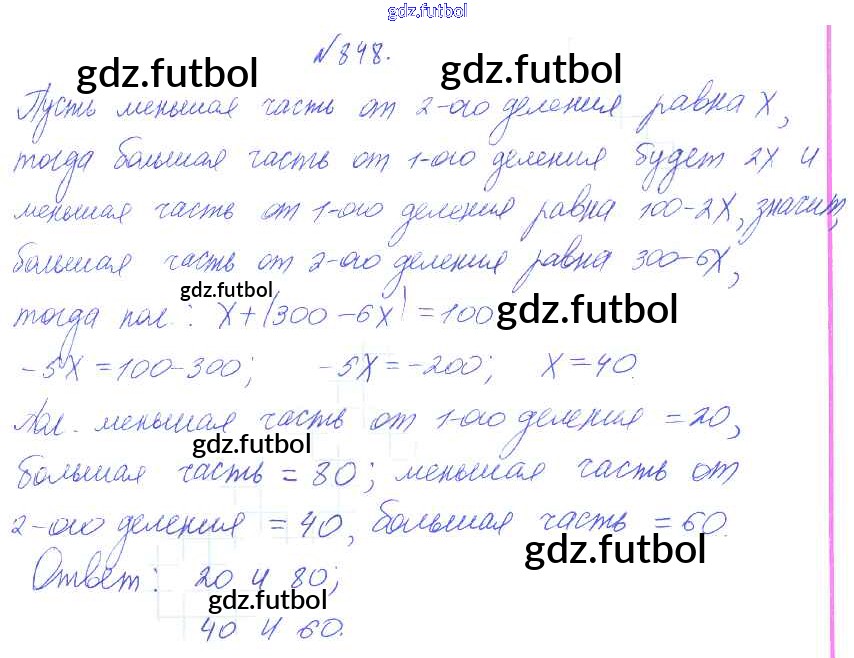 gdz.futbol
№848.
gdz.futbol gdz.futbol
Пусть меньшая часть от 2-ого деления равна x,
тогда большая часть от 1-ого деления будет 2x и
меньшая часть от 1-ого деления равна 100-2x, значит,
большая часть от 2-ого деления равна 300-6x,
gdz.futbol
тогда пол.: x+(300-6x)=100
gdz.futbol
-5x=100-300; -5x=-200; x=40.
Пол. меньшая часть от 1-ого деления =20,
gdz.futbol
большая часть = 80; меньшая часть от
2-ого деления =40, большая часть =60.
gdz.futbol
Ответ: 20 и 80;
gdz.futbol
40 и 60.